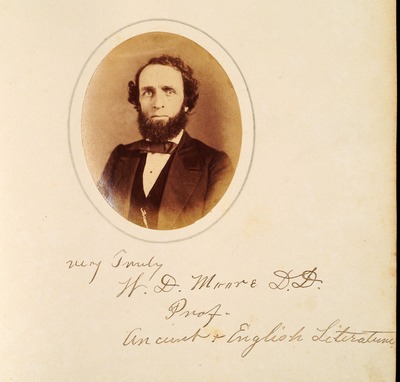 very Truly
W. D. Moore D.D.
Prof.
Ancient & English Literature